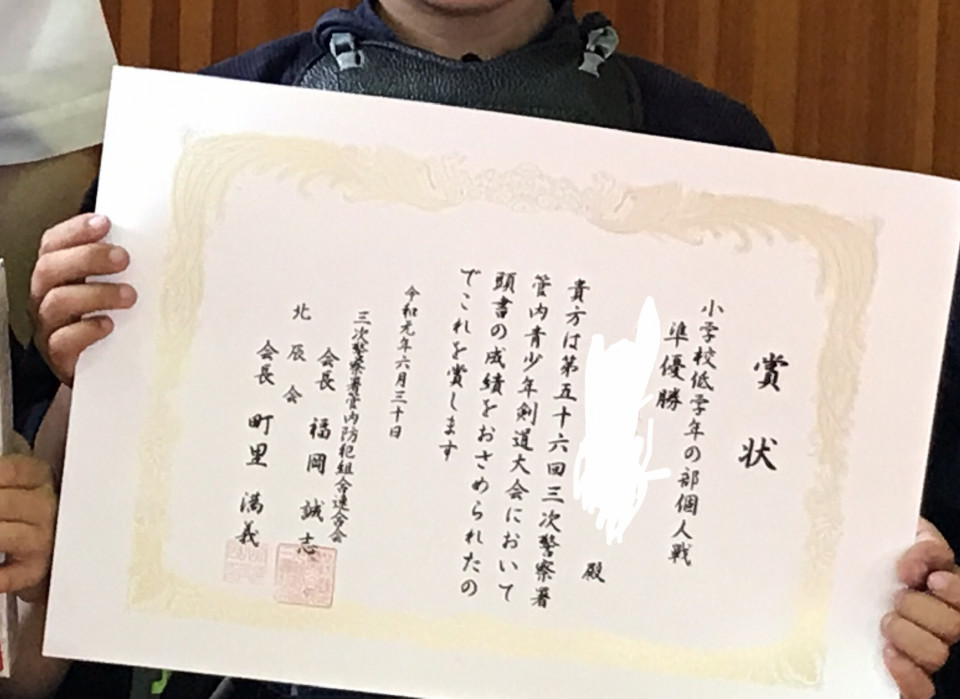 賞状
小学校低学年の部個人戦
準優勝
殿
貴方は第五十六回三次警察署
管内青少年剣道大会において
頭書の成績をおさめられたの
でこれを賞します
令和元年六月三十日
三次警察署管内防犯組合連合会
会長 福岡 誠志
北辰会
会長 町里 満義